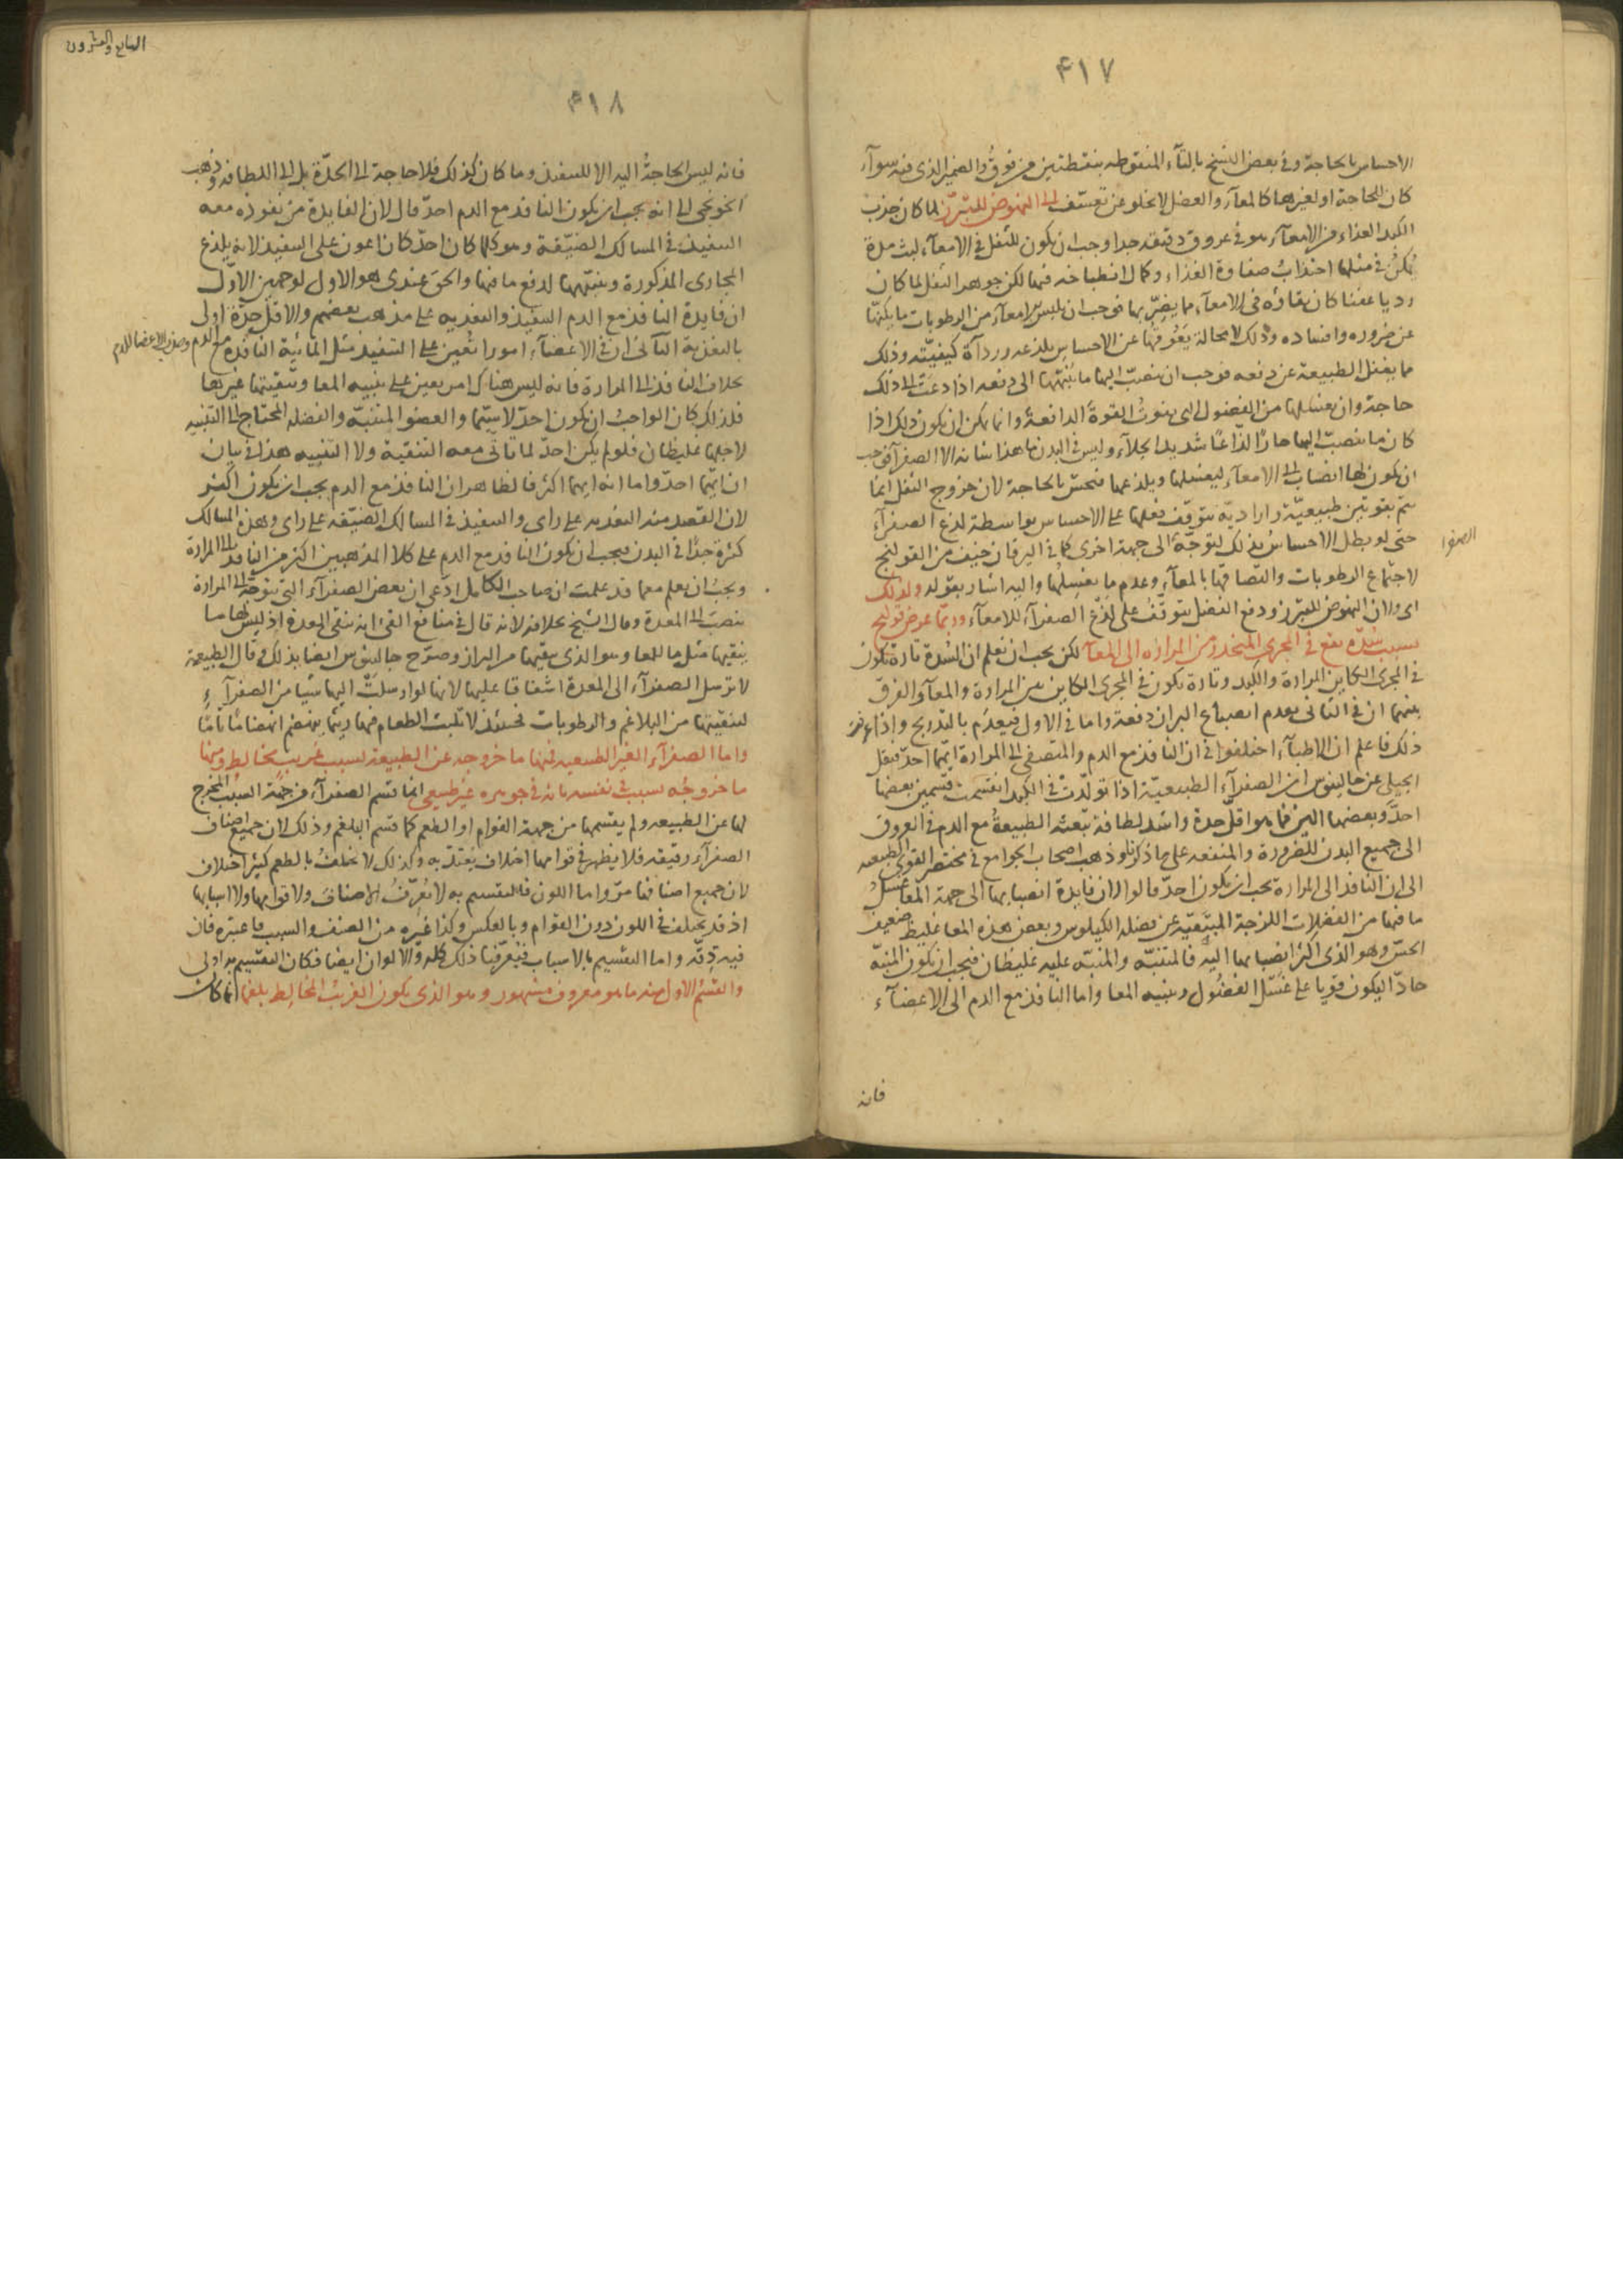 ٤١٧
الاحساس بالحاجة وفي بعض النسخ بالتآء المنقوطه بنقطتين من فوق والضمير الذى فيه سوآء
كان للحاجة او لغيرها كالمعآء والفضل لا يخلو عن تعسّف الى النهوض للتبرّز لما كان جذب
الكبد الغذاء من الامعآء هو فى عروق دقيقه جدا وجب ان يكون للثفل فى الامعآء لبث مدة
يمكن فى مثلها اجتذاب صفاوة الغذاء وكمال انطباخه فيها لكن جوهر الثفل لما كان
رديا عفنا كان بقاؤه فى الامعآء مما يضرّ بها فوجب ان يلبس الامعآء من الرطوبات ما يكنها
عن ضروره وافساده وذلك لا محالة يعوقها عن الاحساس بلذعه وردآة كيفيّته وذلك
مما يغفل الطبيعة عن دفعه فوجب ان ينصبّ اليها ما ينبّهها الى دفعه اذا دعت الى ذلك
حاجة وان يغسلها من الفضول لئى يفوت القوة الدافعة وانما يمكن ان يكون ذلك اذا
كان ما ينصبّ اليها حارا لذّاعا شديد الجلآء وليس فى البدن ما هذا شانه الا الصفرآء فوجب
ان يكون لها انصباب الى الامعآء ليغسلها ويلذعها فتحسّ بالحاجة لان خروج الثفل انما
يتم بقوتين طبيعيّة وارادية يتوقف فعلها على الاحساس بواسطة لذع الصفرآء
الصفرا
حتى لو بطل الاحساس بذلك لتوجّه الى جهة اخرى كما فى اليرقان خيف من القولنج
لاجتماع الرطوبات والتصاقها بالمعآء وعدم ما يغسلها واليه اشار بقوله ولذلك
اى ولان النهوض للتبرز ودفع الفضل يتوقف على لذع الصفرآء للامعآء وربما عرض قولنج
بسبب سُدّه يقع فى المجرى المنحدر من المراره الى المعآ لكن يجب ان تعلم ان السُدة تارة تكون
فى المجرى الكاين المرارة والكبد وتارة يكون فى المجرى الكاين بين المرارة والمعآ والفرق
بينهما ان فى الثانى يعدم انصباغ البراز دفعة واما فى الاول فيعدم بالتدريج واذا عرفت
ذلك فاعلم ان الاطبآء اختلفوا فى ان النافذ مع الدم والمتصفى الى المرارة ايّهما احدّ فنقل
الجيلى عن جالينوس ان الصفرآء الطبيعيّة اذا تولّدت فى الكبد انقسمت قسمين بعضها
احدّ وبعضها الين فما هو اقل حدة واشد لطافة تبعثه الطبيعةُ مع الدم فى العروق
الى جميع البدن للضرورة والمنفعه على ما ذكرنا وذهب اصحاب الجوامع فى مختصر القوى الطبيعه
الى ان النافذ الى المرارة يجب ان يكون احدّ قالوا لان فايدة انصبابها الى جهة المعا غسل
ما فيها من الفضلات اللزجة المتبقيّة عن فضله الكيلوس وبعض هذه المعا غليظ ضعيف
الحس وهو الذى اكثر انصبابها اليه فالمتنبّه والمنبّه عليه غليظان فيجب ان يكون المنبّه
حادّا ليكون قويا على غَسْل الفضُول وبنبيه المعا واما النافذ مع الدم الى الاعضآء
فانه
السابع والعشرون
٤١٨
فانه ليس الحاجةُ اليه الا للتنفيذ وما كان كذلك فلا حاجة الى الحدّة بل الى اللطافه وذهب
الخونجى الى انه يجب ان يكون النافذ مع الدم احدّ قال لان الفايدة من نفوذه معه
التنفيذ فى المسالك الضيّقة وهو كلما كان احدّ كان اعون على التنفيذ لانه يلذع
المجارى المذكورة وينبّهها لدفع ما فيها والحق عندى هو الاول لوجهين الاوّل
ان فايدة النافذ مع الدم التنفيذ والتغذيه على مذهب بعضهم والاقل حدّة اولى
بالتغذية الثانى ان فى الاعضآء امورا تُعين على التنفيذ مثل المائية النافذة مع الدم وجذب الاعضا للدم
بخلاف النافذ الى المرارة فانه ليس هناك امر يعين على تنبيه المعا وتنقيتها غيرها
فلذلك كان الواجب ان يكون احدّ لا سيّما والعضو المتنبّه والفضله المحتاج الى التنبيه
لاجلها غليظان فلو لم يكن احدّ لما تاتى معه التنقية ولا التنبيه هذا فى بيان
ان ايّهما احدّ واما انه ايهما اكثر فالظاهر ان النافذ مع الدم يجب ان يكون اكثر
لان القصد منه التغذيه على راى والتنفيذ فى المسالك الضيّقه على راى وهذه المسالك
كثرة جدّا فى البدن فيجب ان يكون النافذ مع الدم على كلا المذهبين اكثر من النافذ الى المرارة
ويجبُ ان يعلم معما قد علمت ان صاحب الكامل ادّعى ان بعض الصفرآء التى تتوجّه الى المرارة
ينصبّ الى المعدة وقال الشيخ بخلافه لانه قال فى منافع القئ انه ينقى المعدة اذ ليس لها ما
ينقيها مثل ما للمعا وهو الذى ينقيها من البراز وصرّح جالينوس ايضا بذلك وقال الطبيعة
لا ترسل الصفرآء الى المعدة اشفاقا عليها لانها لو ارسلتْ اليها شيا من الصفرآء
لتنقيتها من البلاغم والرطوبات فحينئذ لا تلبث الطعام فيها ريثما ينهضم انهضامًا تامًّا
واما الصفرآء الغير الطبيعيه فمنها ما خروجه عن الطبيعة لسبب غريب يخالطه ومنها
ما خروجُه لسبب فى نفسه بانه فى جوهره غير طبيعى انما قسّم الصفرآء من جهة السبب المخرج
لها عن الطبيعه ولم يقسّمها من جهة القوام او الطعم كما قسّم البلغم وذلك لان جميع اصناف
الصفرآء رقيقه فلا يظهر فى قوامها اختلاف يُعتدّ به وكذلك لا تختلف بالطعم كثير اختلاف
لان جميع اصنافها مرّ واما اللون فالتقسيم به لا يُعرّفُ الاصناف ولا قوامها ولا اسبابها
اذ قد يختلف فى اللون دون القوام وبالعكس وكذا غيره من الصنف والسبب فاعتبره فان
فيه دقّه واما التقسيم بالاسباب فيُعرّفنا ذلك كله والالوان ايضا فكان التقسيم به اولى
والقسْم الاول منه ما هو معروف مشهور وهو الذى يكون الغريبُ المخالط بلغما انما كان